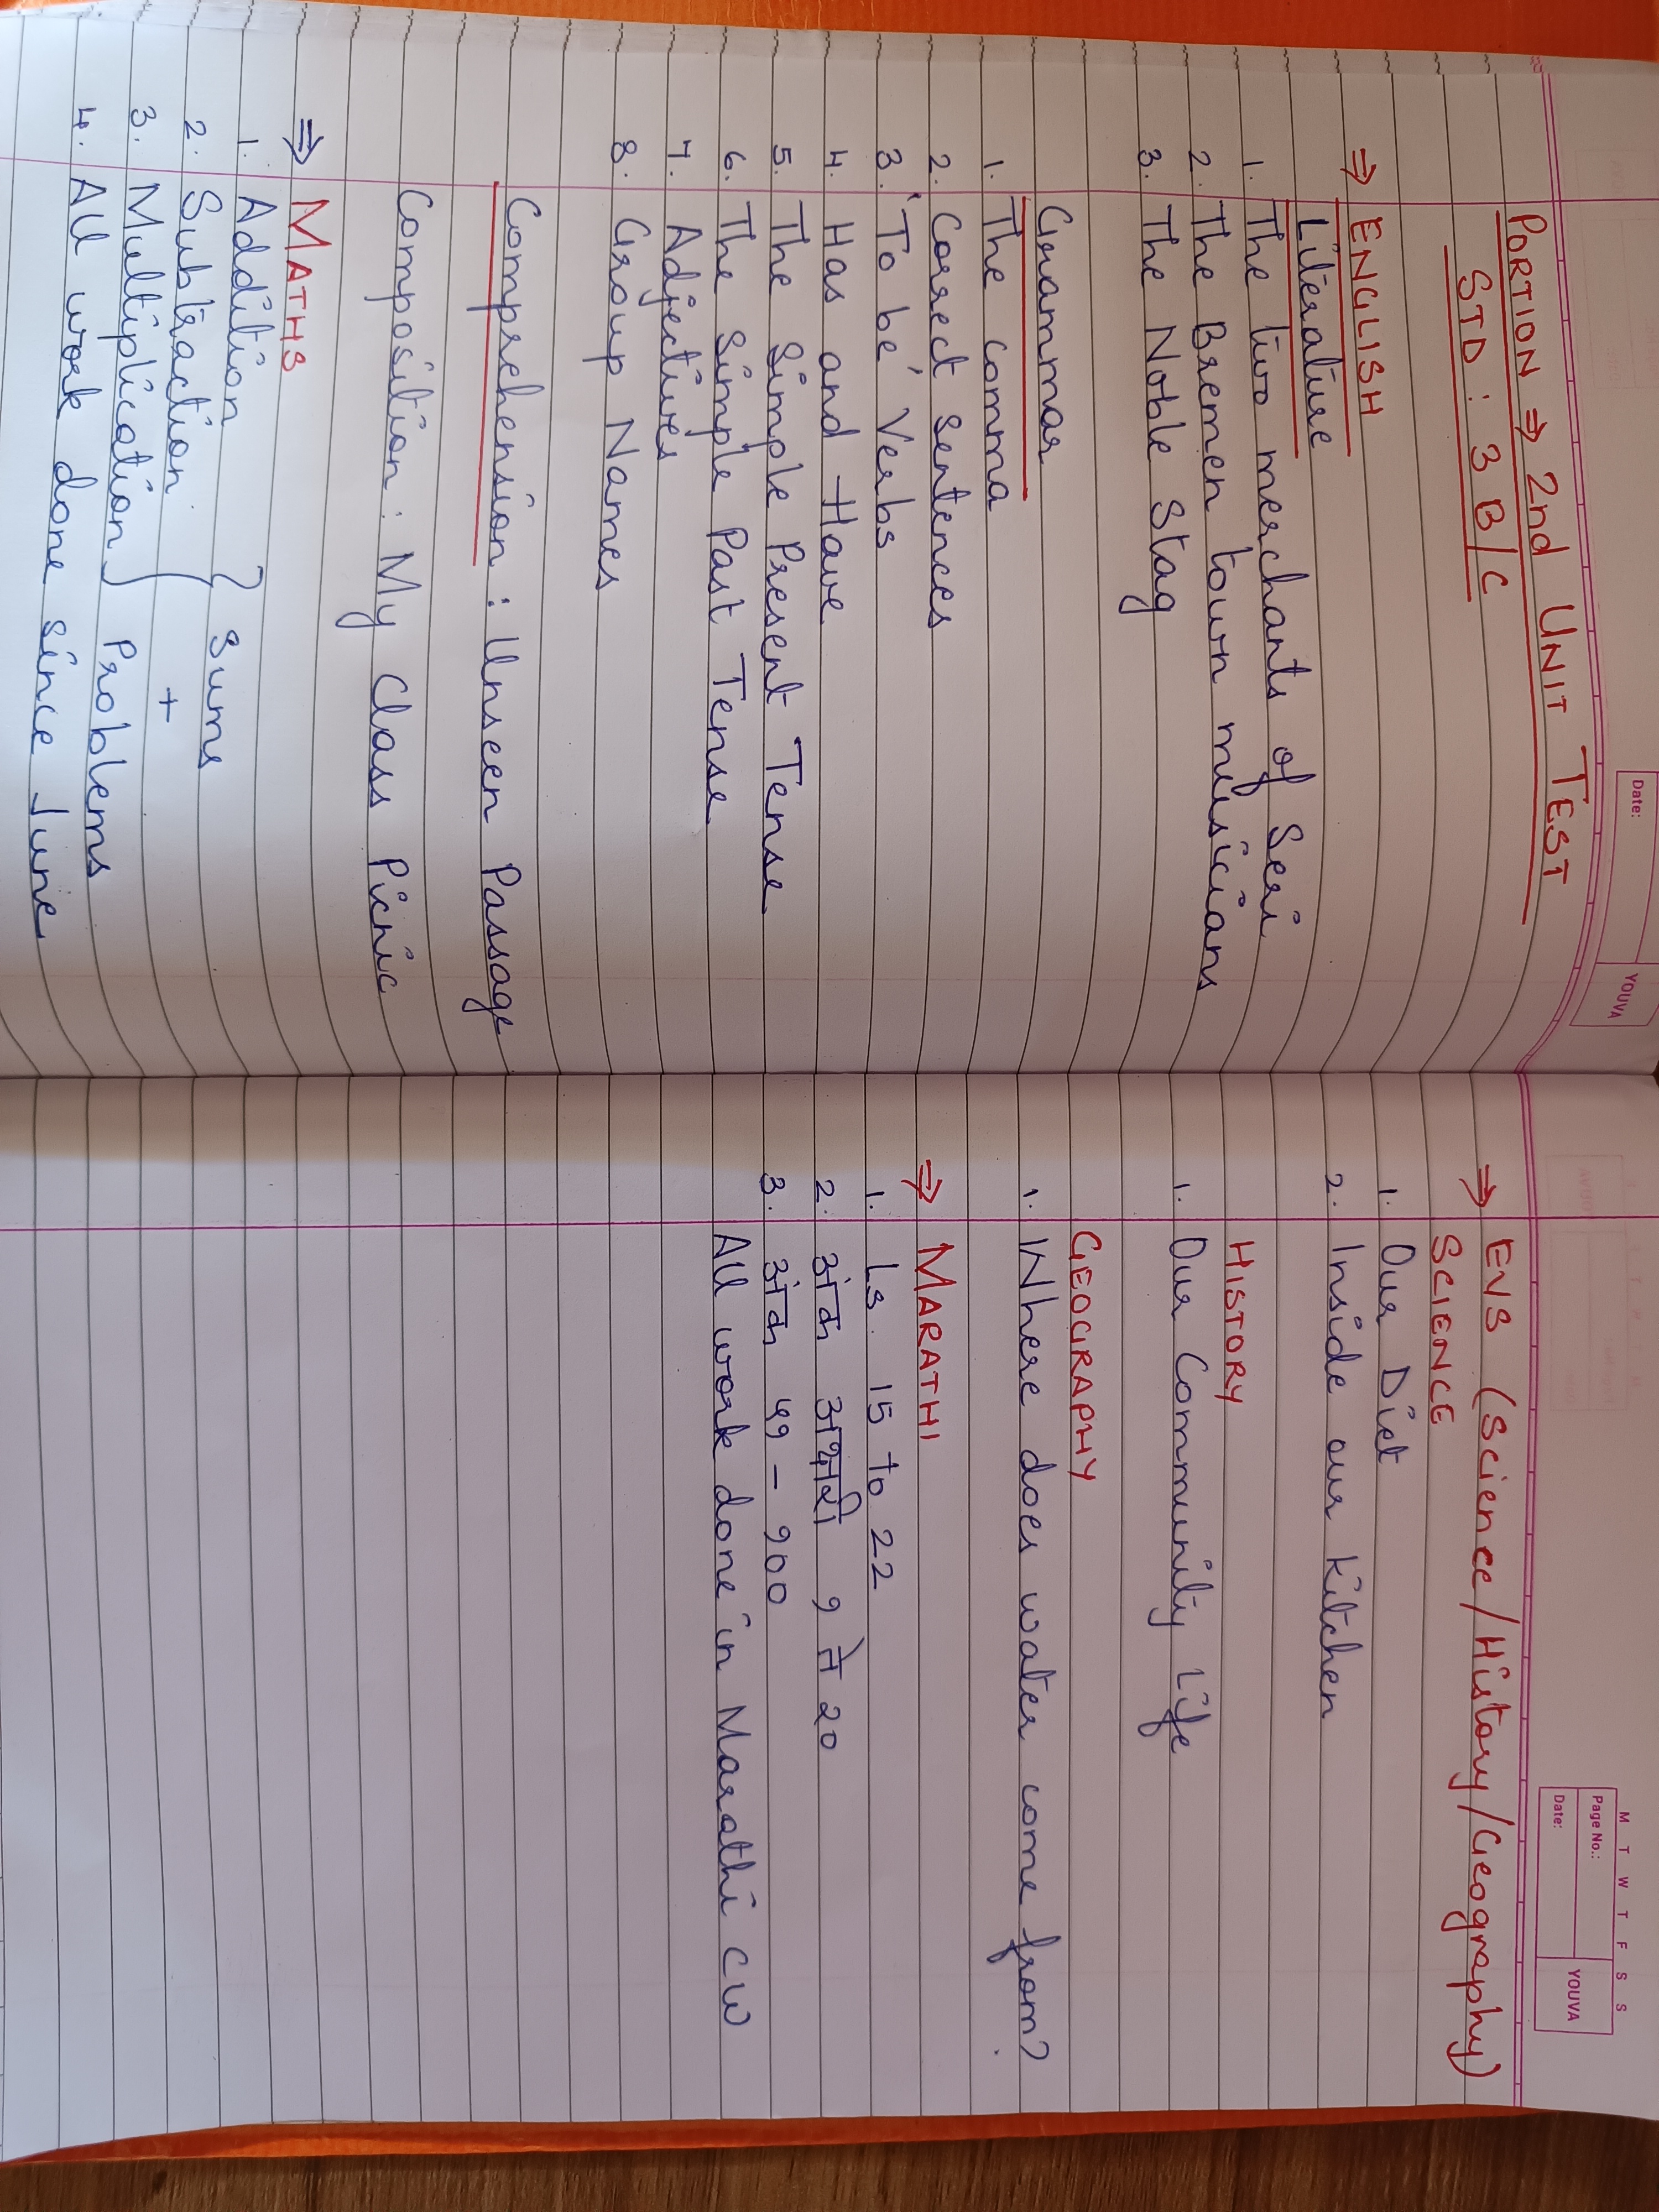 Date:
YOUVA
PORTION ⇒ 2nd UNIT TEST
STD : 3 B/C
⇒ ENGLISH
Literature
1. The two merchants of Seri
2. The Bremen town musicians
3. The Noble Stag
Grammar
1. The comma
2. Correct sentences
3. 'To be' Verbs
4. Has and Have
5. The Simple Present Tense
6. The Simple Past Tense
7. Adjectives
8. Group Names
Comprehension : Unseen Passage
Composition : My Class Picnic
⇒ MATHS
1. Addition
2. Subtraction } Sums
3. Multiplication } + Problems
4. All work done since June
M T W T F S S
Page No.:
Date:
YOUVA
⇒ EVS (Science/History/Geography)
SCIENCE
1. Our Diet
2. Inside our kitchen
HISTORY
1. Our Community Life
GEOGRAPHY
1. Where does water come from?
⇒ MARATHI
1. Ls. 15 to 22
2. अंक अक्षरी १ ते 20
3. अंक ५१ - १००
All work done in Marathi CW